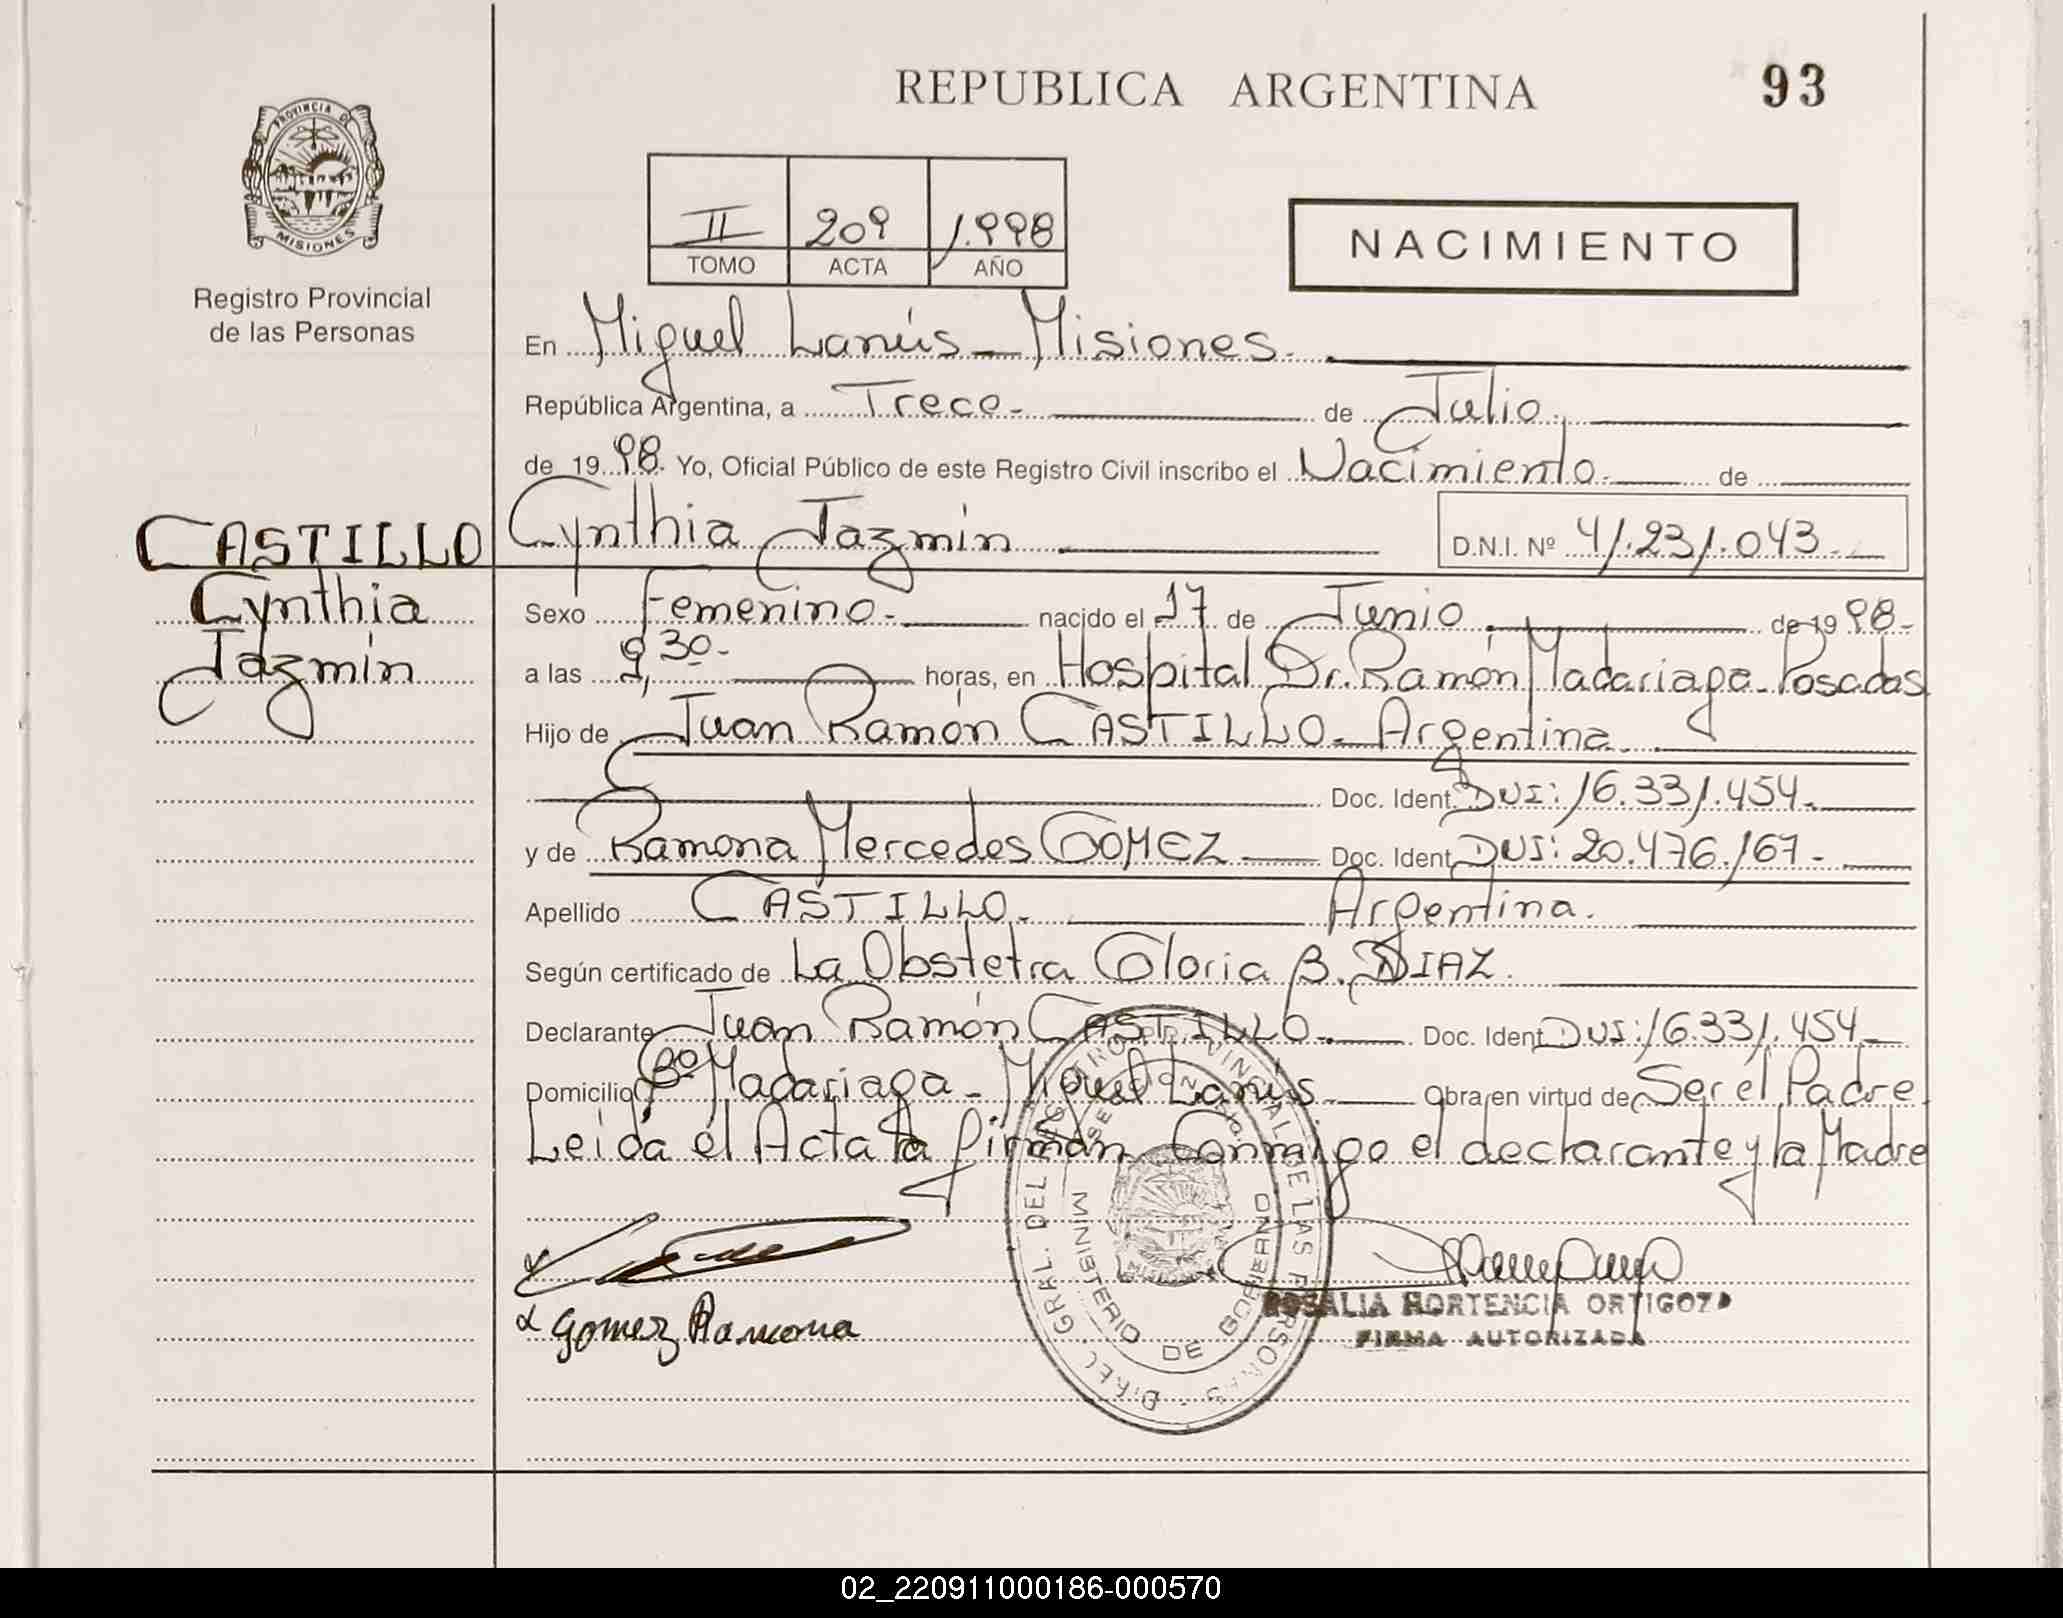 REPUBLICA ARGENTINA
93
PROVINCIA DE
MISIONES
Registro Provincial
de las Personas
II 209 1.998
TOMO ACTA AÑO
NACIMIENTO
En Miguel Lanús - Misiones.
República Argentina, a Trece. de Julio.
de 19 98. Yo, Oficial Público de este Registro Civil inscribo el Nacimiento. de
CASTILLO Cynthia Jazmín D.N.I. Nº 41.231.043.
Cynthia
Jazmín
Sexo Femenino. nacido el 17 de Junio de 19 98.
a las 9,30. horas, en Hospital Dr. Ramón Madariaga. Posadas
Hijo de Juan Ramón CASTILLO. Argentina.
Doc. Ident. DUI: 16.331.454.
y de Ramona Mercedes GOMEZ Doc. Ident. DUI: 20.476.167.
Apellido CASTILLO. Argentina.
Según certificado de La Obstetra Gloria B. DIAZ.
Declarante Juan Ramón CASTILLO. Doc. Ident. DUI: 16.331.454
Domicilio Bº Madariaga - Miguel Lanús. Obra en virtud de Ser el Padre
Leida el Acta la firman Conmigo el declarante y la Madre
Gomez Ramona
ROSALIA HORTENCIA ORTIGOZA
FIRMA AUTORIZADA
DIREC. GRAL. DEL REGISTRO PROVINCIAL DE LAS PERSONAS
MINISTERIO DE GOBIERNO
02_220911000186-000570